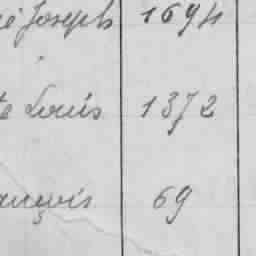 é Joseph 1694
te Louis 1372
ançois 69